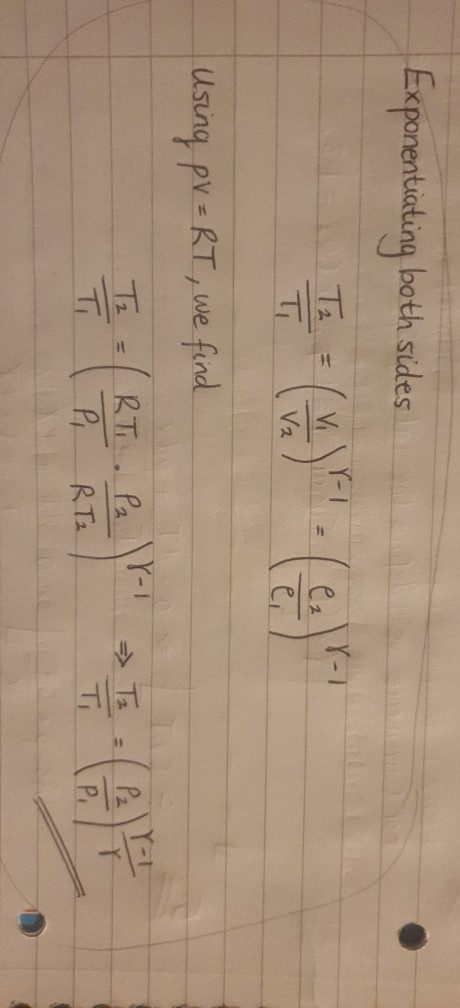 Exponentiating both sides
T₂/T₁ = (V₁/V₂)^(γ-1) = (ρ₂/ρ₁)^(γ-1)
Using pV = RT, we find
T₂/T₁ = (RT₁/P₁ · P₂/RT₂)^(γ-1) ⇒ T₂/T₁ = (P₂/P₁)^((γ-1)/γ)